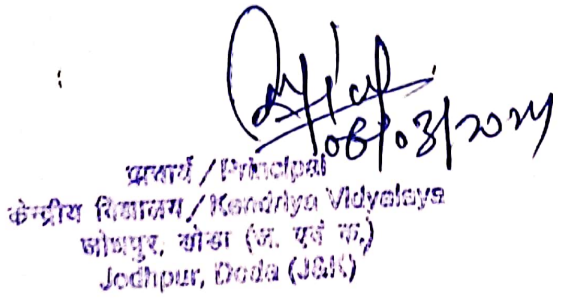 08/03/2024
प्राचार्य / Principal
केन्द्रीय विद्यालय / Kendriya Vidyalaya
जोधपुर, डोडा (ज. एवं क.)
Jodhpur, Doda (J&K)